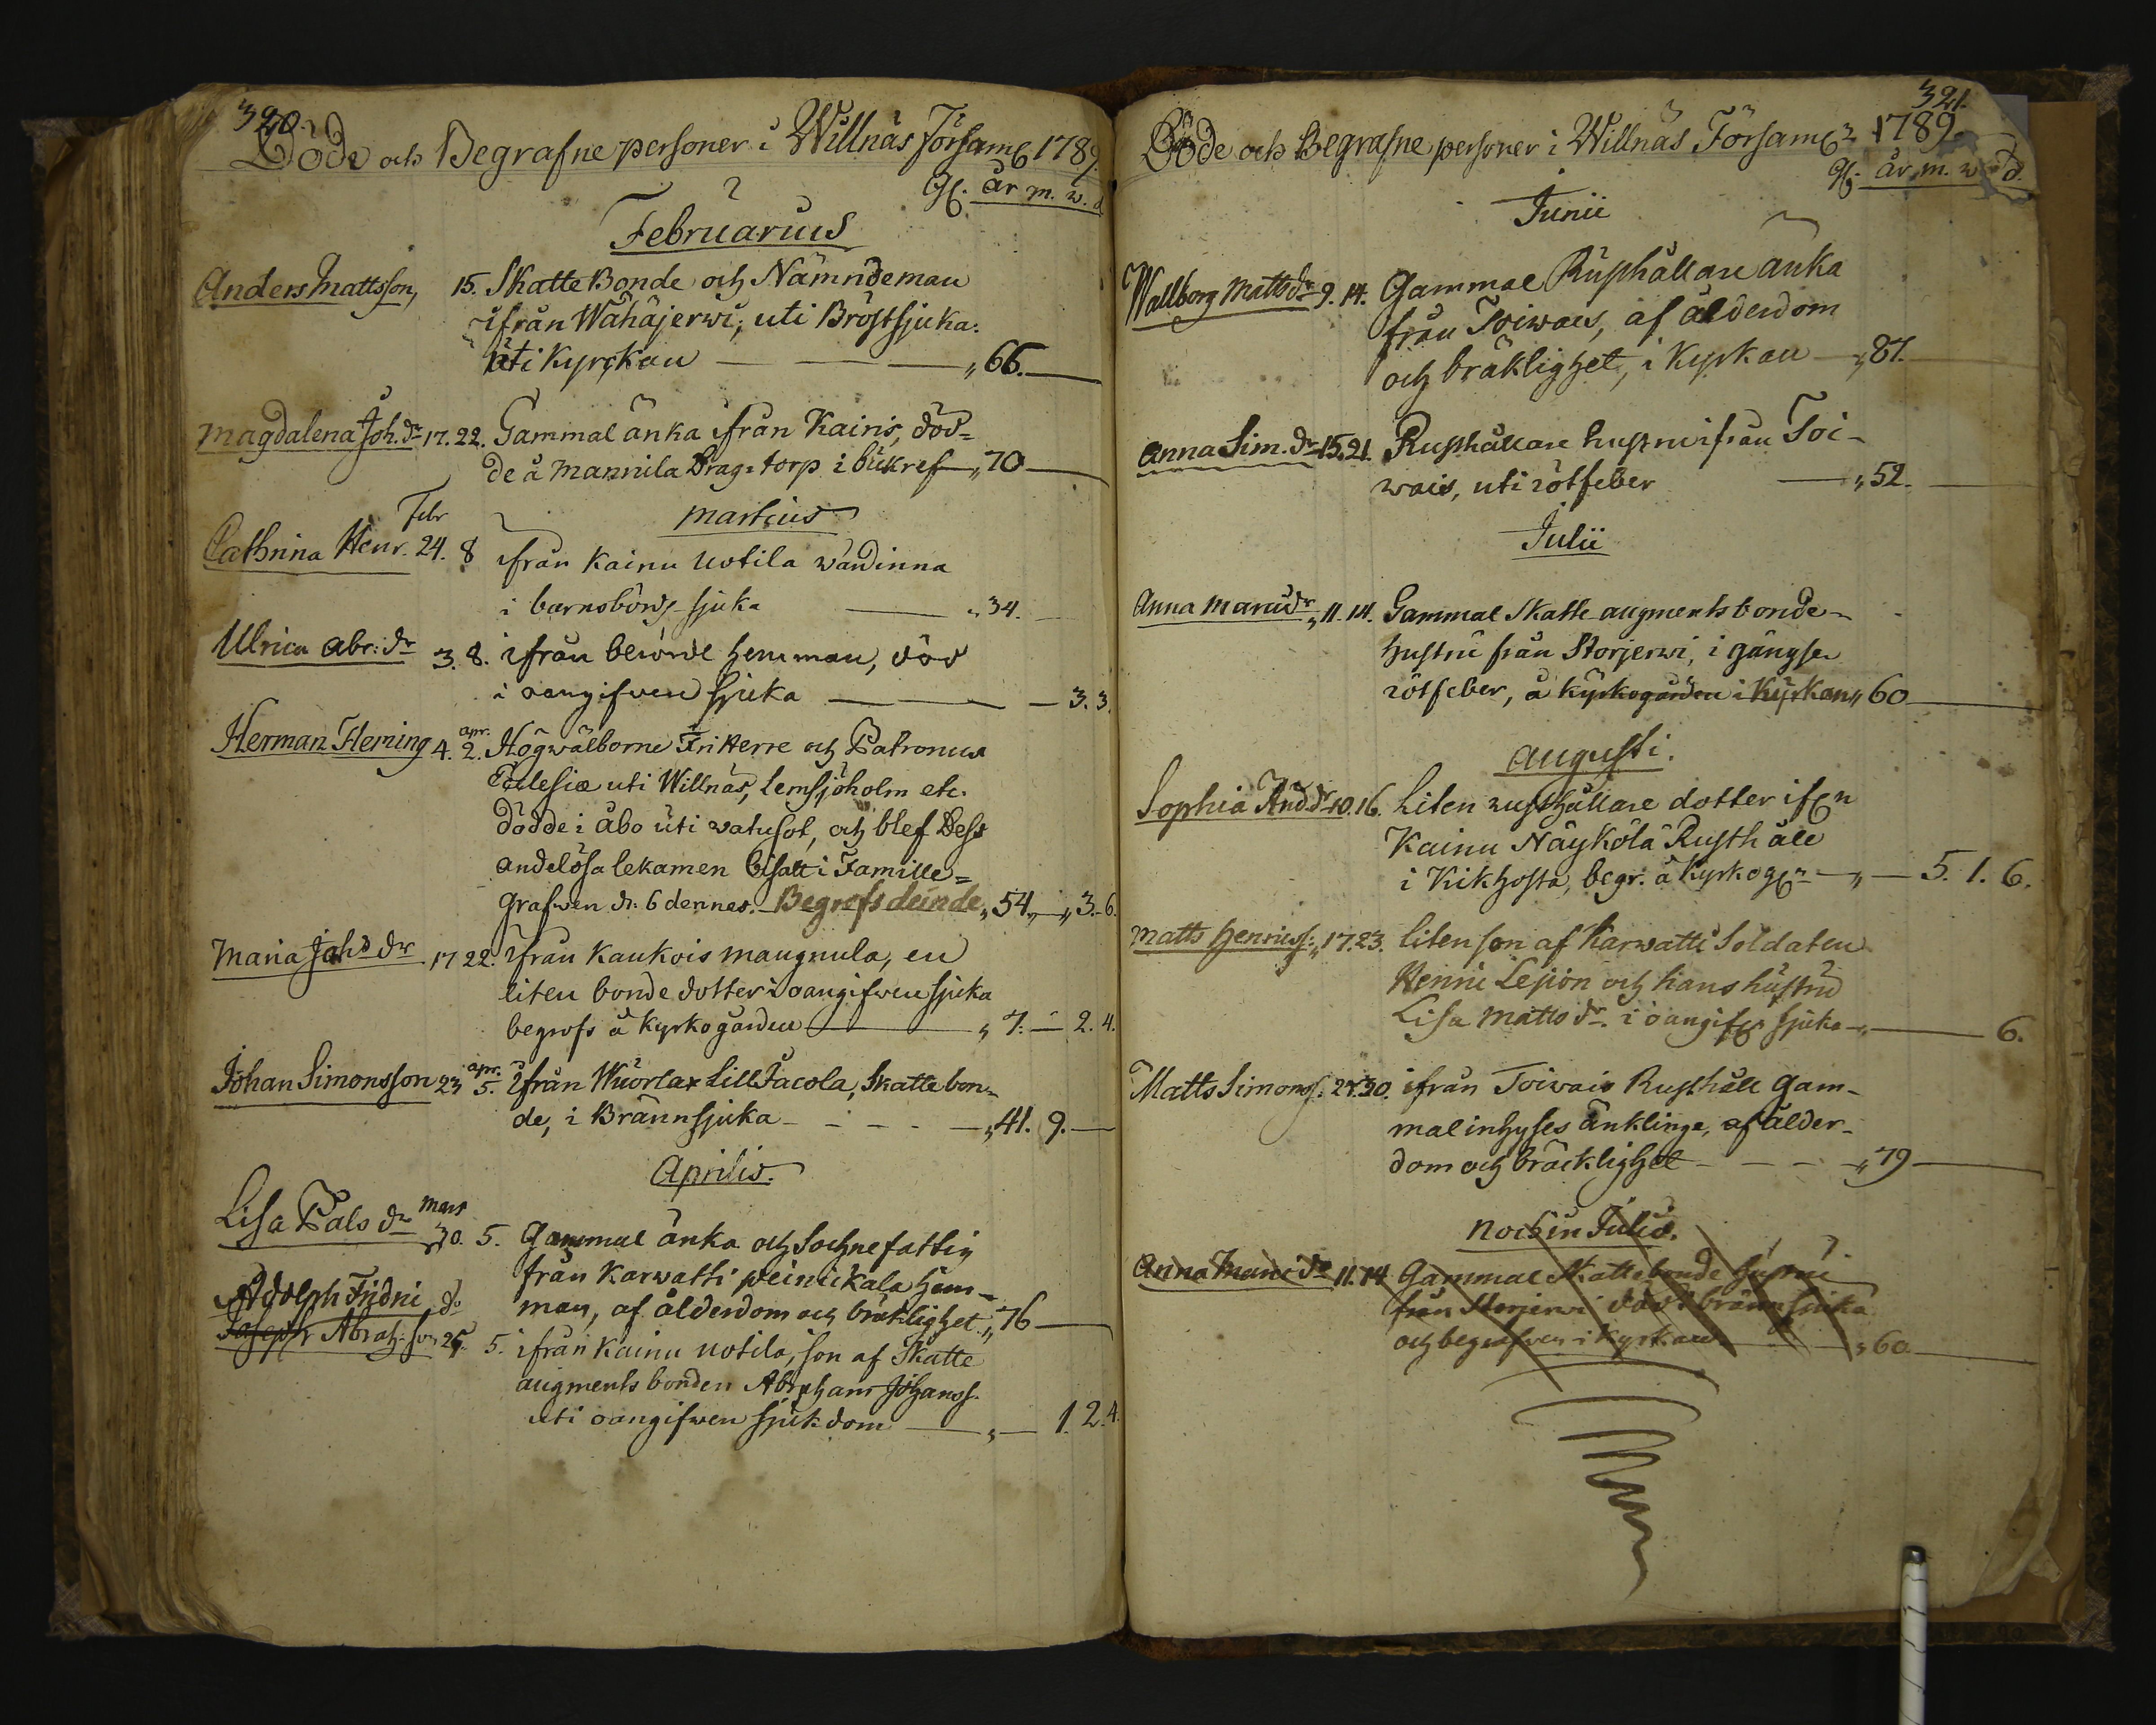 320.
Döde och Begrafne personer i Willnäs Församl 1789.
Gl. år m. w. d
Februarius
Anders Mattsson, 15. Skatte Bonde och Nämndeman
ifrån Wähäjerwi, uti Bröstsjuka.
uti Kyrckan — „ 66. —
Magdalena Joh. dr 17. 22. Gammal änka ifrån Kainis, död=
de å Mannila Drags torp i bukref — „ 70 —
Martius
Febr
Cathrina Henr. 24. 8 ifrån Kainu Uotila wärdinna
i barnsbörds sjuka — „ 34. —
Ulrica Abr: dr 3. 8. ifrån hemman, död
i oangifwen sjuka — 3. 3.
apr.
Herman Fleming 4. 2. Högwälborne Friherre och Patronus
Ecclesiæ uti Willnäs, Lemsjöholm etc.
dödde i Åbo uti watusot, och blef Dess
andelösa lekamen bisatt i Famille=
Grafwen d: 6 dennes. Begrofs deinde „ 54 „ — „ 3. 6.
Maria Joh: dr 17 22. ifrån Kaukois maugnula, en
liten bonde dotter i oangifwen sjuka
begrofs å Kyrkogården — „ 7. — 2. 4.
apr.
Johan Simonsson 23 5. ifrån Wuorlax Lill Jacola, Skatte bon=
de, i Brännsjuka - - - — „ 41. 9. —
Aprilis.
Mars
Lisa Pals dr 30. 5. Gammal änka och Sochnefattig
från Karwatti hem=
man, af ålderdom och bräklighet „ 76 —
Adolph Fridri do
Joseph Abrah: son 25. 5. ifrån Kainu Uotila, son af Skatte
augments bonden Abraham Johanss.
uti oangifwen sjukdom — „ — 1. 2. 4.
321.
Döde och Begrafne personer i Willnäs Församl:n 1789.
Gl. år m. w d.
Junii
Wallborg Matts dr 9. 14. Gammal Rusthållare änka
från Toiwais, af ålderdom
och bräklighet, i Kyrkan — „ 87. —
Anna Sim. dr 15. 21. Rusthållare hustru ifrån Toi-
wais, uti rötfeber — „ 52. —
Julii
Anna Marcidr „ 11. 14. Gammal Skatte augments bonde-
hustru från Storjerwi, i gångse
rötfeber, å kyrkogården i Kyrkan „ 60 —
Augusti.
Sophia And. dr 10. 16. Liten rusthållare dotter ifrån
Kainu Näykölä Rusthåll
i Kikhosta, begr. å Kyrkog:n — „ — 5. 1. 6.
Matts Henricss: „ 17. 23. liten son af Karwatti Soldaten
Henric Lejion och hans hustru
Lisa Matts dr. i oangifw: sjuka — „ — 6.
Matts Simonss: 24. 30. ifrån Toiwais Rusthåll gam-
mal inhyses änklinge, af ålder-
dom och bräcklighet - - - — „ 79 —
Noch in Julio.
Anna Marci dr 11. 14 Gammal Skattebonde hustru
från Storjerwi död i brännsjuka
och begrafwen i Kyrkan — „ 60 —